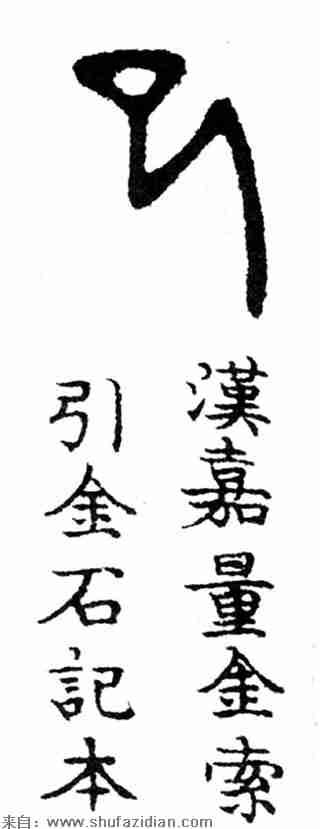 漢嘉量金索
引金石記本
来自：www.shufazidian.com